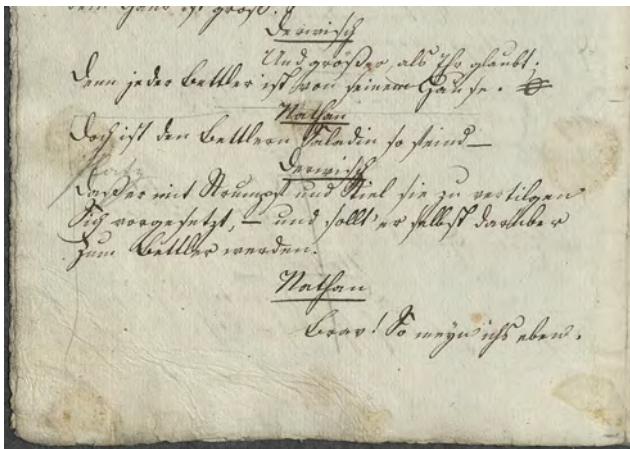 dem Haus' ist groß.
Derwisch
Und größer, als Ihr glaubt;
Denn jeder Bettler ist von seinem Hause.
Nathan
Doch ist den Bettlern Saladin so feind—
Derwisch
Daß er mit Strumpf und Stiel sie zu vertilgen
Sich vorgesetzt, – und sollt' er selbst darüber
Zum Bettler werden.
Nathan
Brav! So meyn' ichs eben.